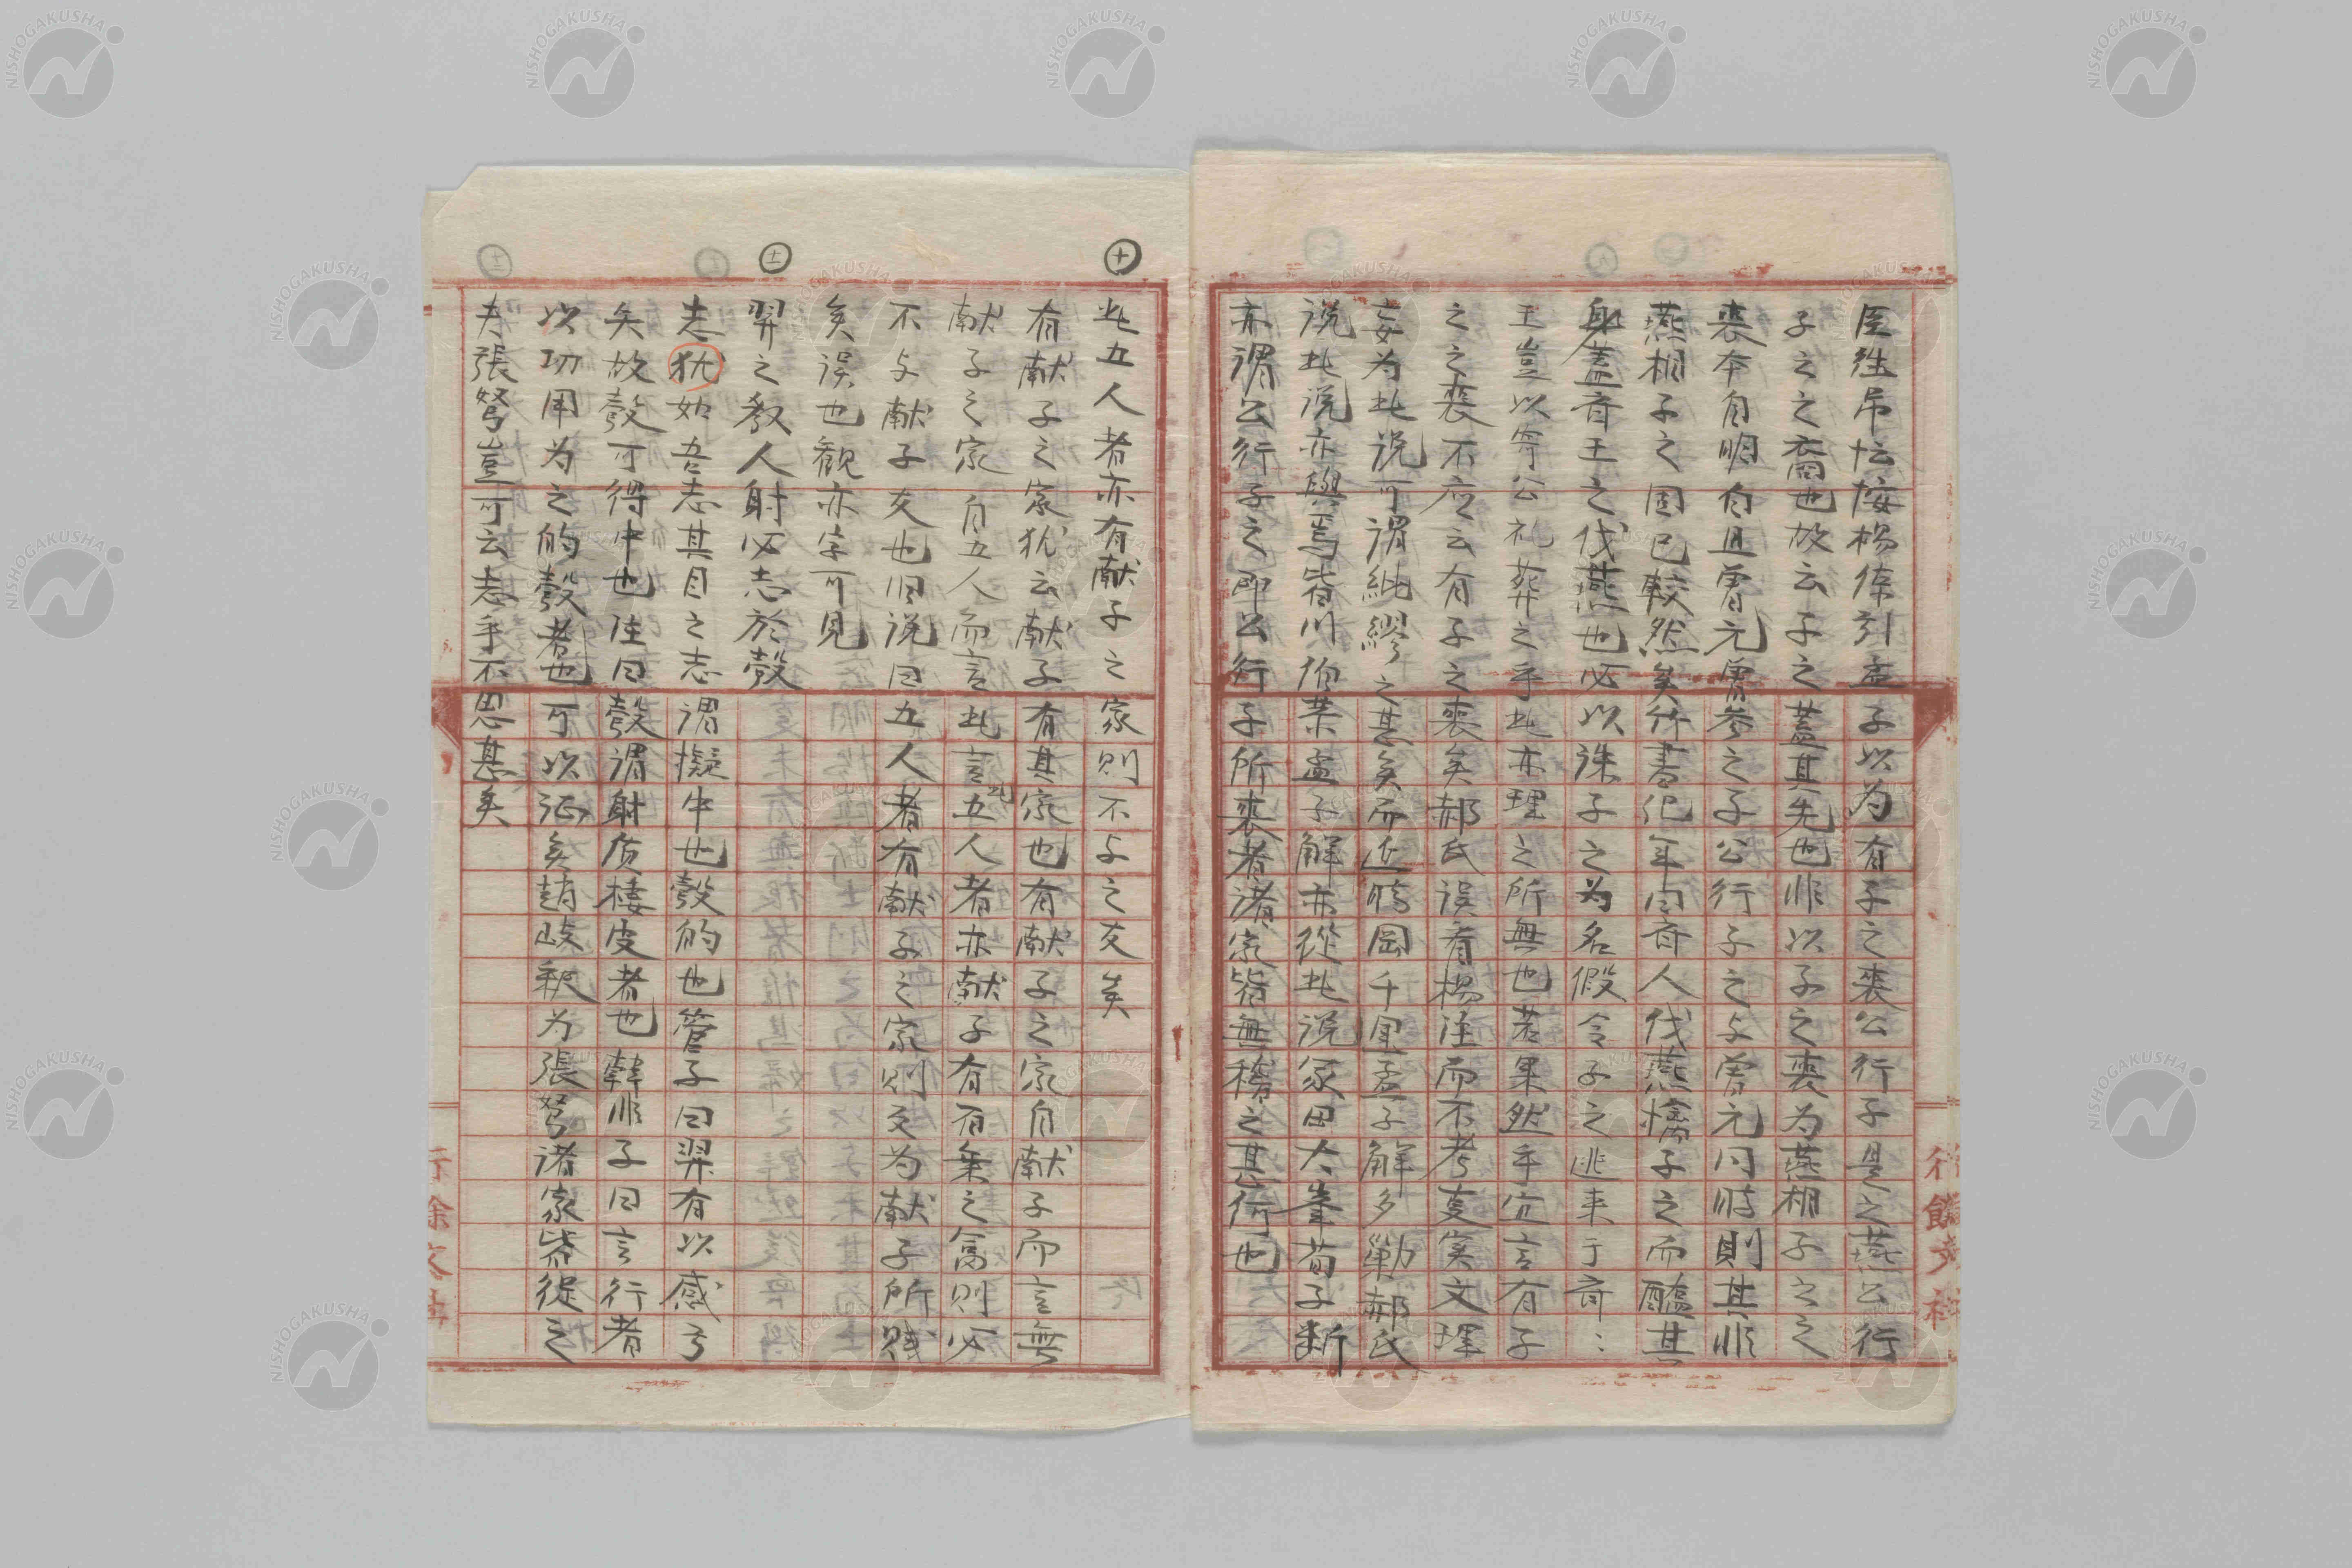 臣往吊忘按楊倞引孟子以為有子之喪公行子是之燕公行
子之之裔也故云子之蓋其先也非以子之喪為燕相子之之
喪本自明白且曽元曽参之子公行子之与曽元同時則其非
燕相子之固已較然矣竹書紀年曰斉人伐燕擒子之而醢其
身蓋斉王之伐燕也必以誅子之為名假令子之逃来于斉
王豈以寄公礼葬之乎此亦理之所無也若果然乎宜言有子
之之喪不応云有子之喪矣郝氏誤看楊注而不考事実文理
妄為此説可謂紕繆之甚矣而近時岡千里孟子解多勦郝氏
説此説亦與焉皆川伯恭孟子解亦從此説冢田大峯荀子断
亦謂公行子之即公行子所喪者諸家皆無稽之甚何也
十
此五人者亦有献子之家則不与之友矣
有献子之家犹云献子有其家也有献子之家自献子而言無
献子之家自五人而言此言五人者亦献子有百乗之富則必
不与献子友也旧説曰五人者有献子之家則交為献子所賤
矣誤也観亦字可見
十一
羿之教人射必志於彀
志犹如吾志其目之志謂擬中也彀的也管子曰羿有以感弓
矢故彀可得中也注曰彀謂射质棲皮者也韓非子曰言行者
以功用為之的彀者也可以証矣趙岐釈为張弩諸家皆從之
夫張弩豈可云志乎不思甚矣
行餘文社